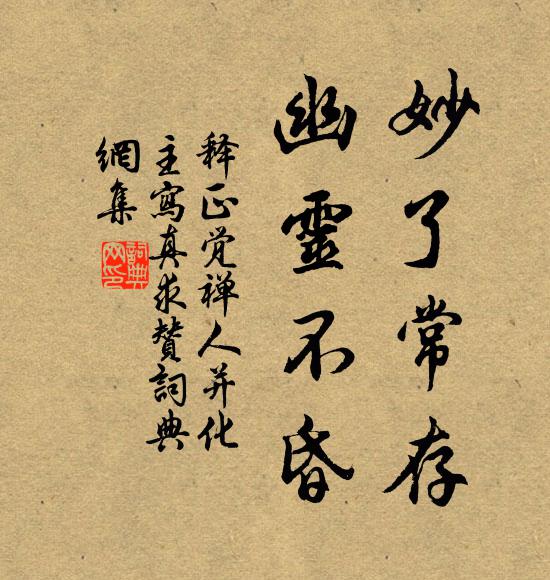 妙了常存
幽靈不昏
释正觉禅人并化
主寫真求贊詞典
網集
詞典网印